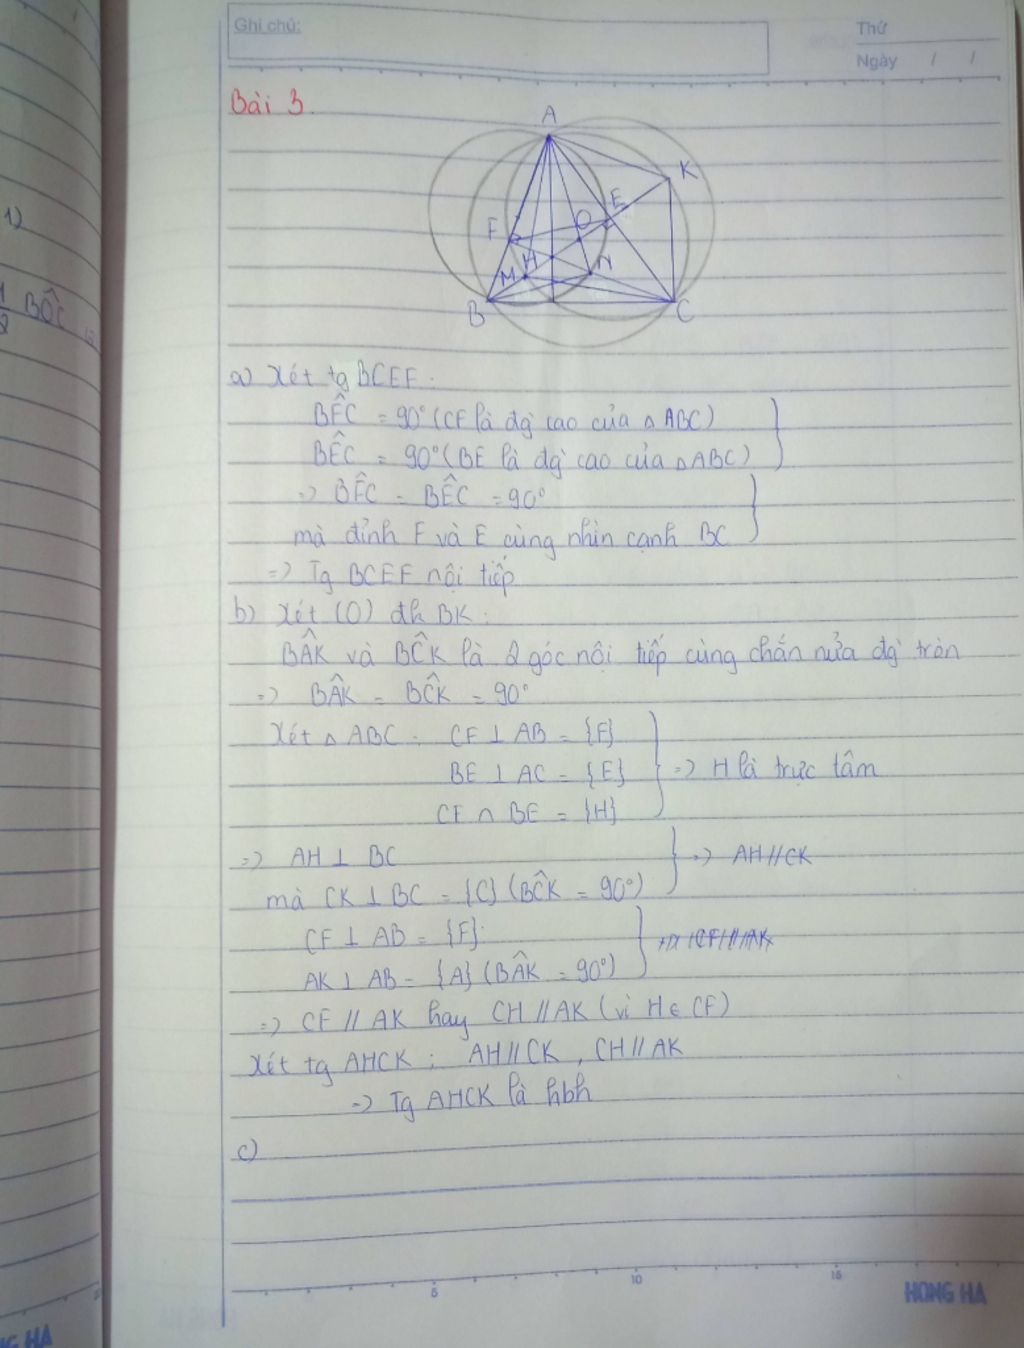 Ghi chú:
Thứ
Ngày / /
Bài 3.
A
K
E
O
F
H
N
M
B
C
1)
1/2 BÔC
a) Xét tg BCEF:
BF̂C = 90° (CF là đg` cao của △ ABC)
BÊC = 90° (BE là đg` cao của △ABC)
=> BF̂C = BÊC = 90°
mà đỉnh F và E cùng nhìn cạnh BC
=> Tg BCEF nội tiếp
b) Xét (O) đk BK:
BÂK và BĈK là 2 góc nội tiếp cùng chắn nửa đg` tròn
=> BÂK = BĈK = 90°
Xét △ ABC: CF ⊥ AB = {F}
BE ⊥ AC = {E} => H là trực tâm
CF ∩ BE = {H}
=> AH ⊥ BC => AH // CK
mà CK ⊥ BC = {C} (BĈK = 90°)
CF ⊥ AB = {F}
AK ⊥ AB = {A} (BÂK = 90°)
=> CF // AK hay CH // AK (vì H ∈ CF)
Xét tg AHCK: AH // CK, CH // AK
=> Tg AHCK là hbh
c)
5
10
15
HONG HA